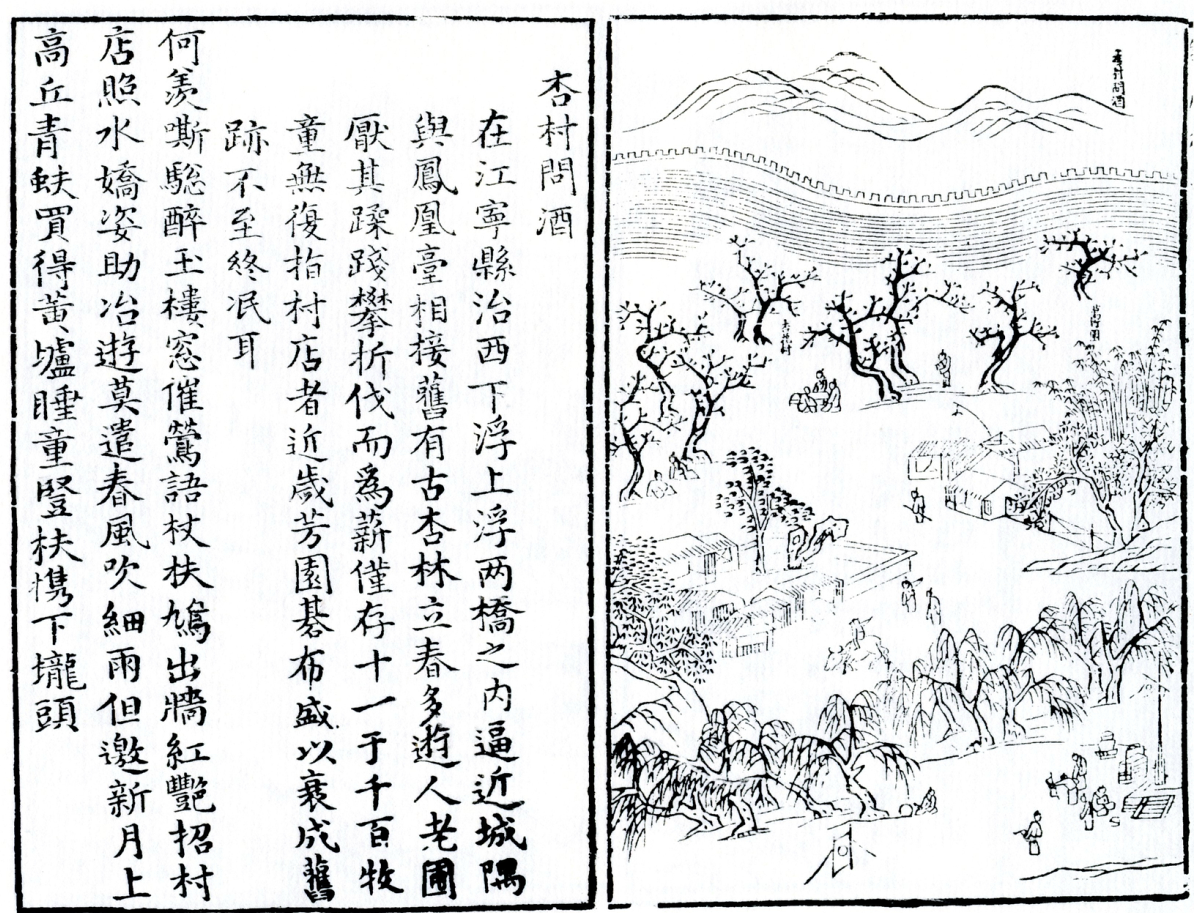 杏村問酒
杏村問酒
在江寧縣治西下浮上浮两橋之內逼近城隅
與鳳凰臺相接舊有古杏林立春多遊人老圃
厭其蹂踐攀折伐而為薪僅存十一于千百牧
童無復指村店者近歲芳園碁布盛以衰成舊
跡不至終泯耳
何羨嘶驄醉玉樓窓催鶯語杖扶鳩出牆紅艷招村
店照水嬌姿助冶遊莫遣春風吹細雨但邀新月上
高丘青蚨買得黃壚睡童豎扶携下壠頭